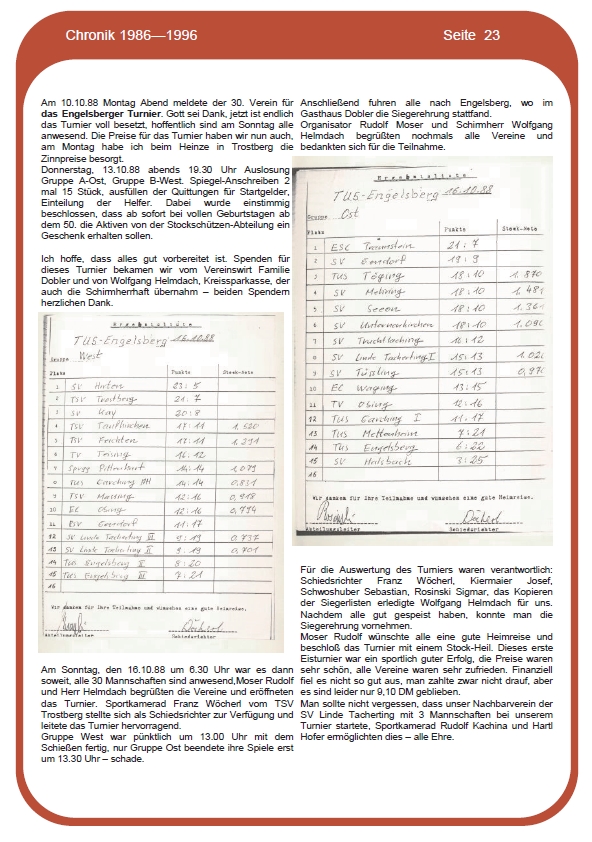 Chronik 1986—1996
Seite 23
Am 10.10.88 Montag Abend meldete der 30. Verein für
das Engelsberger Turnier. Gott sei Dank, jetzt ist endlich
das Turnier voll besetzt, hoffentlich sind am Sonntag alle
anwesend. Die Preise für das Turnier haben wir nun auch,
am Montag habe ich beim Heinze in Trostberg die
Zinnpreise besorgt.
Donnerstag, 13.10.88 abends 19.30 Uhr Auslosung
Gruppe A-Ost, Gruppe B-West. Spiegel-Anschreiben 2
mal 15 Stück, ausfüllen der Quittungen für Startgelder,
Einteilung der Helfer. Dabei wurde einstimmig
beschlossen, dass ab sofort bei vollen Geburtstagen ab
dem 50. die Aktiven von der Stockschützen-Abteilung ein
Geschenk erhalten sollen.
Ich hoffe, dass alles gut vorbereitet ist. Spenden für
dieses Turnier bekamen wir vom Vereinswirt Familie
Dobler und von Wolfgang Helmdach, Kreissparkasse, der
auch die Schirmherrschaft übernahm – beiden Spendern
herzlichen Dank.
Ergebnisliste
TUS-Engelsberg 16.10.88
Gruppe West
Platz Punkte Stock-Note
1 SV Hirten 23:5
2 TSV Trostberg 21:7
3 SV Kay 20:8
4 TSV Taufkirchen 17:11 1,520
5 TSV Feichten 17:11 1,291
6 TV Teising 16:12
7 14:14 1,079
8 TUS Garching 14:14 0,831
9 TSV Massing 12:16 0,918
10 EC Obing 12:16 0,794
11 Emertorf 11:17
12 SV Linde Tacherting III 9:19 0,737
13 SV Linde Tacherting II 9:19 0,701
14 TUS Engelsberg II 8:20
15 TUS Engelsberg III 7:21
16
Wir danken für Ihre Teilnahme und wünschen eine gute Heimreise.
Abteilungsleiter Schiedsrichter
Am Sonntag, den 16.10.88 um 6.30 Uhr war es dann
soweit, alle 30 Mannschaften sind anwesend,Moser Rudolf
und Herr Helmdach begrüßten die Vereine und eröffneten
das Turnier. Sportkamerad Franz Wöcherl vom TSV
Trostberg stellte sich als Schiedsrichter zur Verfügung und
leitete das Turnier hervorragend.
Gruppe West war pünktlich um 13.00 Uhr mit dem
Schießen fertig, nur Gruppe Ost beendete ihre Spiele erst
um 13.30 Uhr – schade.
Anschließend fuhren alle nach Engelsberg, wo im
Gasthaus Dobler die Siegerehrung stattfand.
Organisator Rudolf Moser und Schirmherr Wolfgang
Helmdach begrüßten nochmals alle Vereine und
bedankten sich für die Teilnahme.
Ergebnisliste
TUS-Engelsberg 16.10.88
Gruppe Ost
Platz Punkte Stock-Note
1 ESC Traunstein 21:7
2 SV 19:9
3 TUS Töging 18:10 1.870
4 SV Mehring 18:10 1.48
5 SV Seeon 18:10 1.36
6 SV Unterneukirchen 18:10 1.09
7 SV Truchtlaching 16:12
8 SV Linde Tacherting I 15:13 1.02
9 SV Tüssling 15:13 0,97
10 EC Waging 13:15
11 TV Obing 12:16
12 TUS Garching I 11:17
13 TUS Mettenheim 7:21
14 TUS Engelsberg 6:22
15 SV Halsbach 3:25
16
Wir danken für Ihre Teilnahme und wünschen eine gute Heimreise.
Abteilungsleiter Schiedsrichter
Für die Auswertung des Turniers waren verantwortlich:
Schiedsrichter Franz Wöcherl, Kiermaier Josef,
Schwoshuber Sebastian, Rosinski Sigmar, das Kopieren
der Siegerlisten erledigte Wolfgang Helmdach für uns.
Nachdem alle gut gespeist haben, konnte man die
Siegerehrung vornehmen.
Moser Rudolf wünschte alle eine gute Heimreise und
beschloß das Turnier mit einem Stock-Heil. Dieses erste
Eisturnier war ein sportlich guter Erfolg, die Preise waren
sehr schön, alle Vereine waren sehr zufrieden. Finanziell
fiel es nicht so gut aus, man zahlte zwar nicht drauf, aber
es sind leider nur 9,10 DM geblieben.
Man sollte nicht vergessen, dass unser Nachbarverein der
SV Linde Tacherting mit 3 Mannschaften bei unserem
Turnier startete, Sportkamerad Rudolf Kachina und Hartl
Hofer ermöglichten dies – alle Ehre.